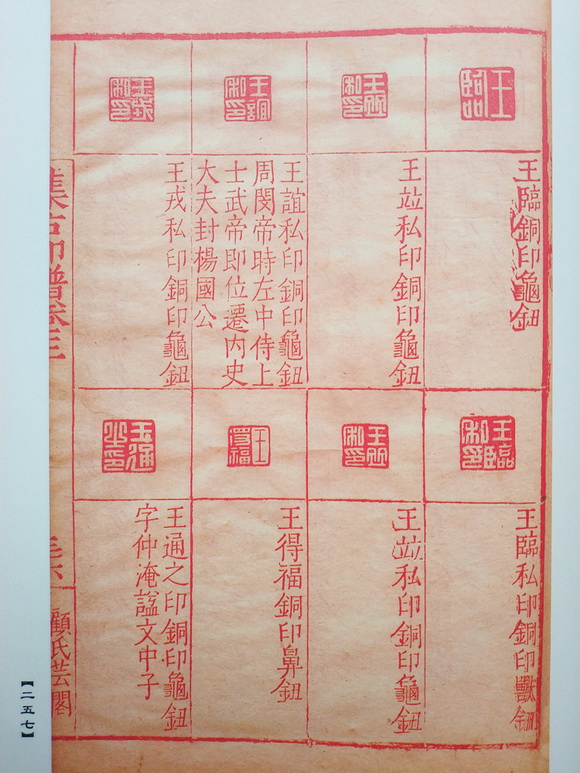 王臨
王臨銅印龜鈕
王竝私印
王竝私印銅印龜鈕
王誼私印
王誼私印銅印龜鈕
周閔帝時左中侍上
士武帝即位遷内史
大夫封楊國公
王戎私印
王戎私印銅印龜鈕
王臨私印
王臨私印銅印獸鈕
王竝私印
王竝私印銅印龜鈕
王得福
王得福銅印鼻鈕
王通之印
王通之印銅印龜鈕
字仲淹諡文中子
集古印譜卷三
顧氏芸閣
【二五七】